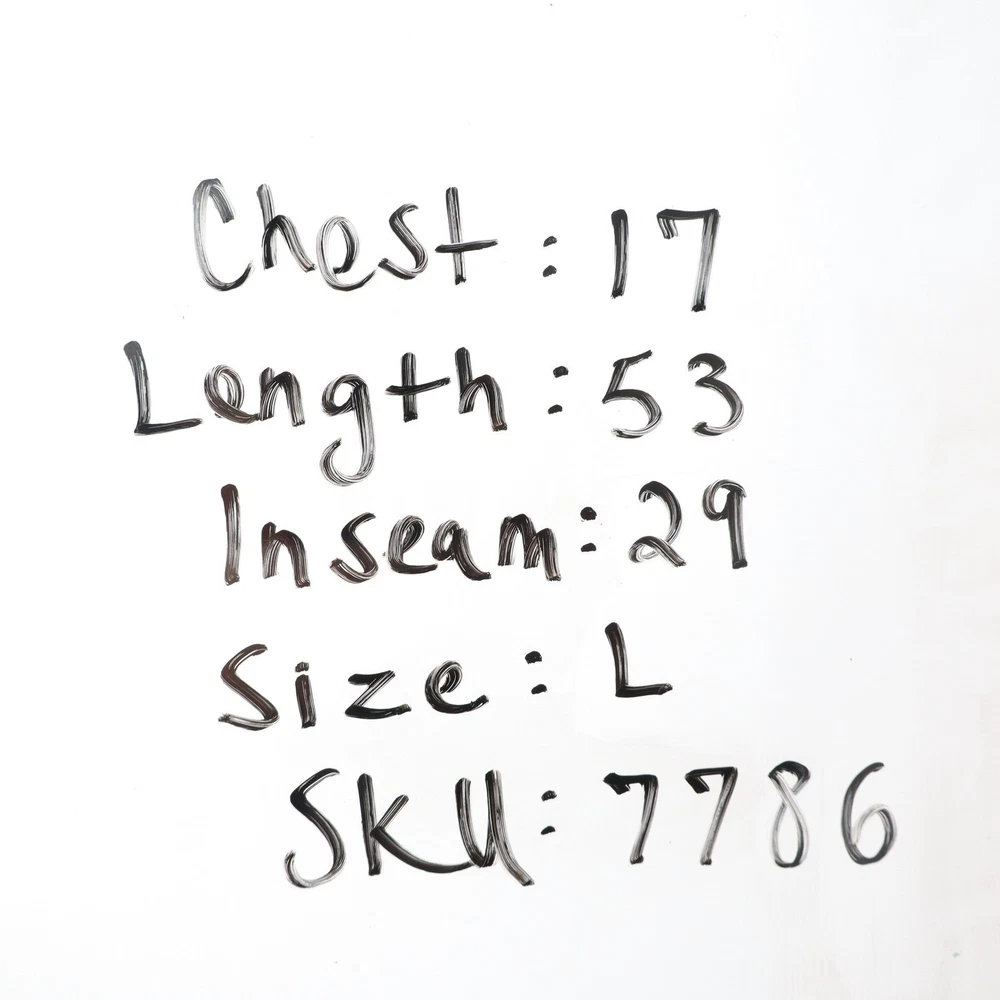 Chest : 17
Length : 53
Inseam : 29
Size : L
SKU : 7786